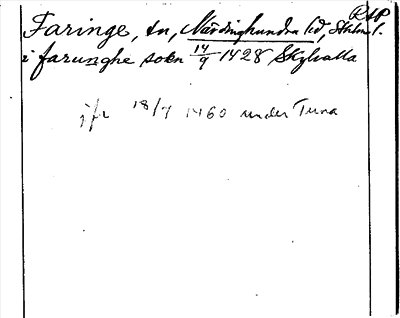 RAP
Faringe, sn, Närdinghundra hd, Sthlms l.
i farunghe sokn 14/9 1428 Skylvalla
jfr 18/7 1460 under Tuna